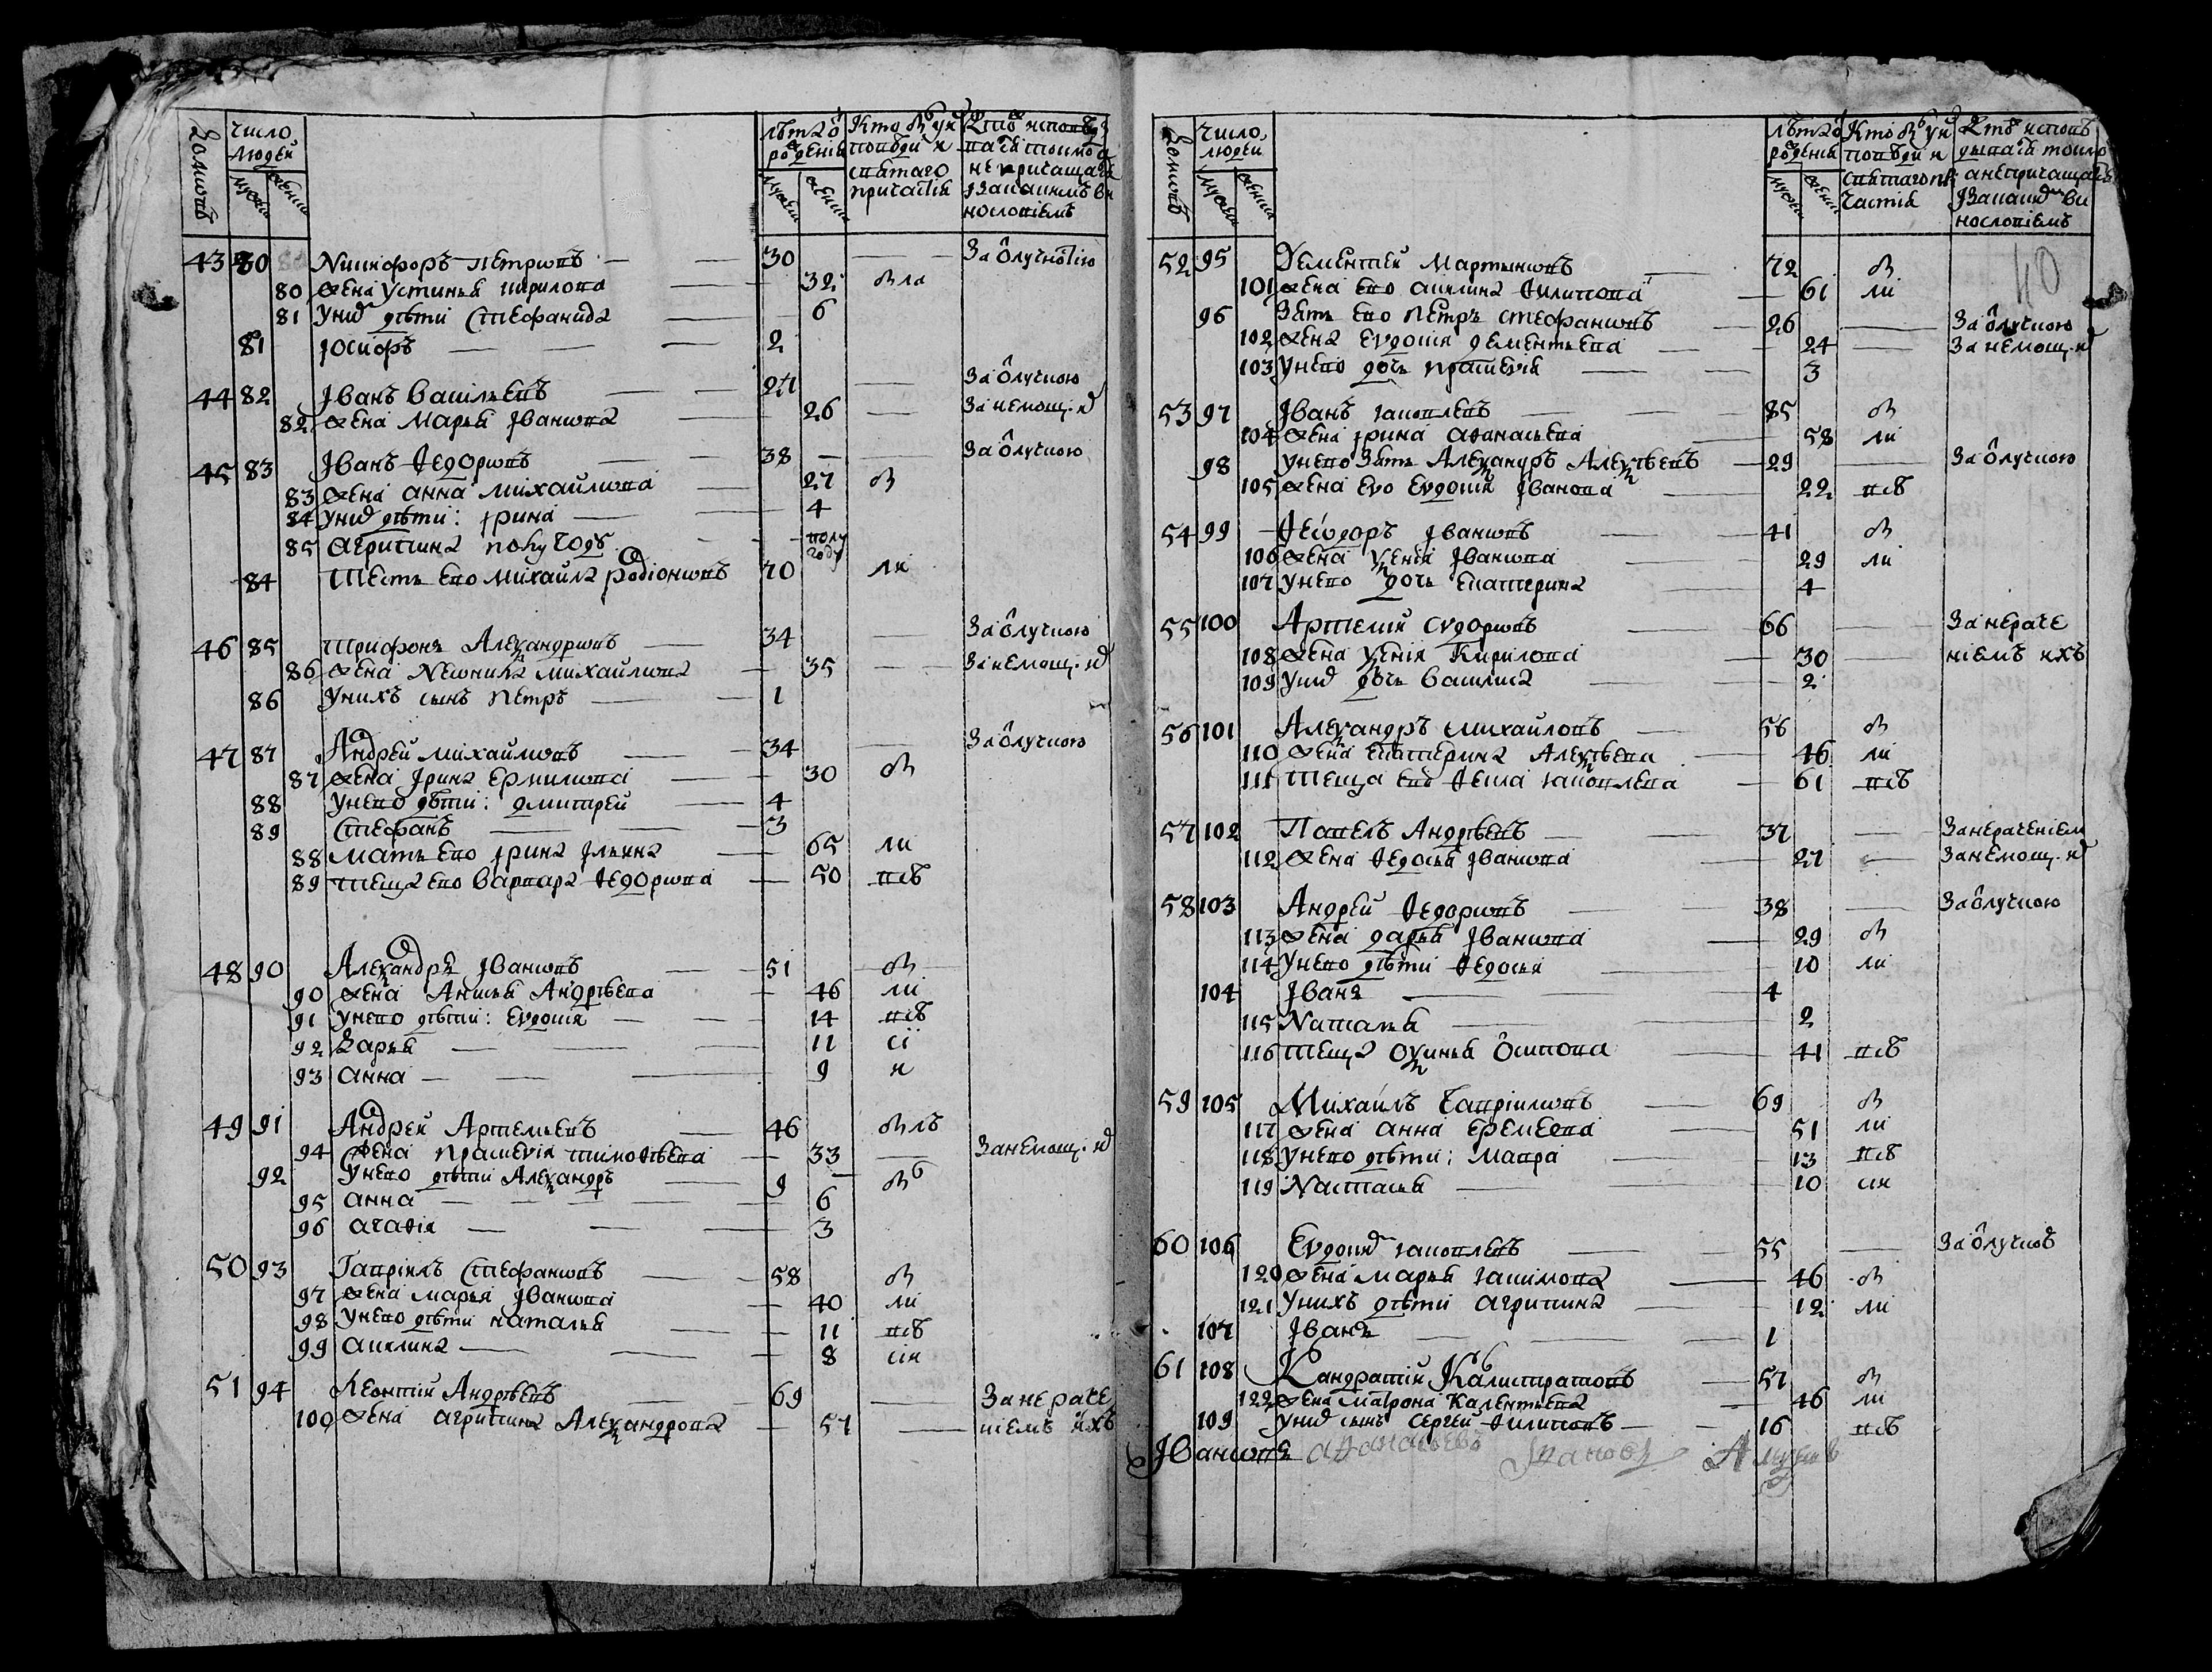 Домовъ
Число людей
Мужеска
Женска
Лѣта рожденія
Мужеска
Женска
Кто былъ у исповѣди и святаго причастія
Кто исповѣдывался токмо а не причащался и за какимъ винословіемъ
43 80 Никифоръ Петровъ 30 За отлучностію
80 жена Устинья Кирилова 32 была
81 у них дѣти Стефанида 6
81 Іосифъ 2
44 82 Іванъ Васильевъ 24 За отлучкою
82 жена Марья Івановa 26 За немощ. ю
45 83 Іванъ Ѳедоровъ 38 За отлучкою
83 жена Анна Михайлова 27 бы
84 у них дѣти: Ірина 4
85 Агрипина полугоду полу году
84 Тесть ево Михаилъ Родіоновъ 70 ли
46 85 Трифонъ Алеѯандровъ 34 За отлучкою
86 жена Неонила Михайлова 35 За немощ. ю
86 у нихъ сынъ Петръ 1
47 87 Андрей Михайловъ 34 За отлучкою
87 жена Ірина Ермилова 30 бы
88 у нево дѣти: Дмитрей 4
89 Стефанъ 3
88 мать ево Ірина Ильина 65 ли
89 теща ево Варвара Ѳедорова 50 всѣ
48 90 Алеѯандръ Івановъ 51 бы
90 жена Анисья Андрѣева 46 ли
91 у нево дѣти: Евдокия 14 всѣ
92 Дарья 11 сі
93 Анна 9 и
49 91 Андрей Артемьевъ 46 былъ
94 жена Праскевія Тимоѳѣева 33 За немощ. ю
92 у нево дѣти Алеѯандръ 9 бы
95 Анна 6
96 Агаѳія 3
50 93 Гавріилъ Стефановъ 58 бы
97 жена Марья Іванова 40 ли
98 у нево дѣти Наталья 11 всѣ
99 Акилина 8 сіи
51 94 Леонтий Андрѣевъ 69 За нераче
100 жена Агрипина Алеѯандрова 57 ніемъ ихъ
Домовъ
Число людей
Мужеска
Женска
Лѣта рожденія
Мужеска
Женска
Кто былъ у исповѣди и святаго причастія
Кто исповѣдывался токмо а не причащался и за каким винословіемъ
40
52 95 Дементей Мартыновъ 72 бы
101 жена ево Акилина Филипова 61 ли
96 Зять ево Петръ Стефановъ 26 За отлучкою
102 жена Евдокия Дементьева 24 За немощ. ю
103 у нево дочь Праскевія 3
53 97 Іванъ Іаковлевъ 85 бы
104 жена Ірина Аѳанасьева 58 ли
98 у нево зять Алеѯандръ Алеѯѣевъ 29 За отлучкою
105 жена ево Евдокия Іванова 22 всѣ
54 99 Ѳеодоръ Івановъ 41 бы
106 жена Ѯенія Іванова 29 ли
107 у нево дочь Екатерина 4
55 100 Артемий Сидоровъ 66 За нераче
108 жена Ѯенія Кирилова 30 ніемъ ихъ
109 у них дочь Василиса 2
56 101 Алеѯандръ Михайловъ 56 бы
110 жена Екатерина Алеѯѣева 46 ли
111 теща ево Ѳекла Іаковлева 61 всѣ
57 102 Павелъ Андрѣевъ 37 За нераченіем
112 жена Ѳедосья Іванова 27 За немощ. ю
58 103 Андрей Ѳедоровъ 38 За отлучкою
113 жена Дарья Іванова 29 бы
114 у нево дѣти Ѳедосья 10 ли
104 Іванъ 4
115 Наталья 2
116 теща Оѯинья Осипова 41 всѣ
59 105 Михаилъ Гавріиловъ 69 бы
117 жена Анна Еремеева 51 ли
118 у нево дѣти: Мавра 13 всѣ
119 Настасья 10 сии
60 106 Евдоким Іаковлевъ 55 За отлучкою
120 жена Марья Іакимова 46 бы
121 у нихъ дѣти Агрипина 12 ли
107 Іванъ 1
61 108 Кандратій Калистратовъ 57 бы
122 жена Матрона Калентьева 46 ли
109 у них сынъ Сергей Филиповъ 16 всѣ
Івановъ Аѳанасьевъ